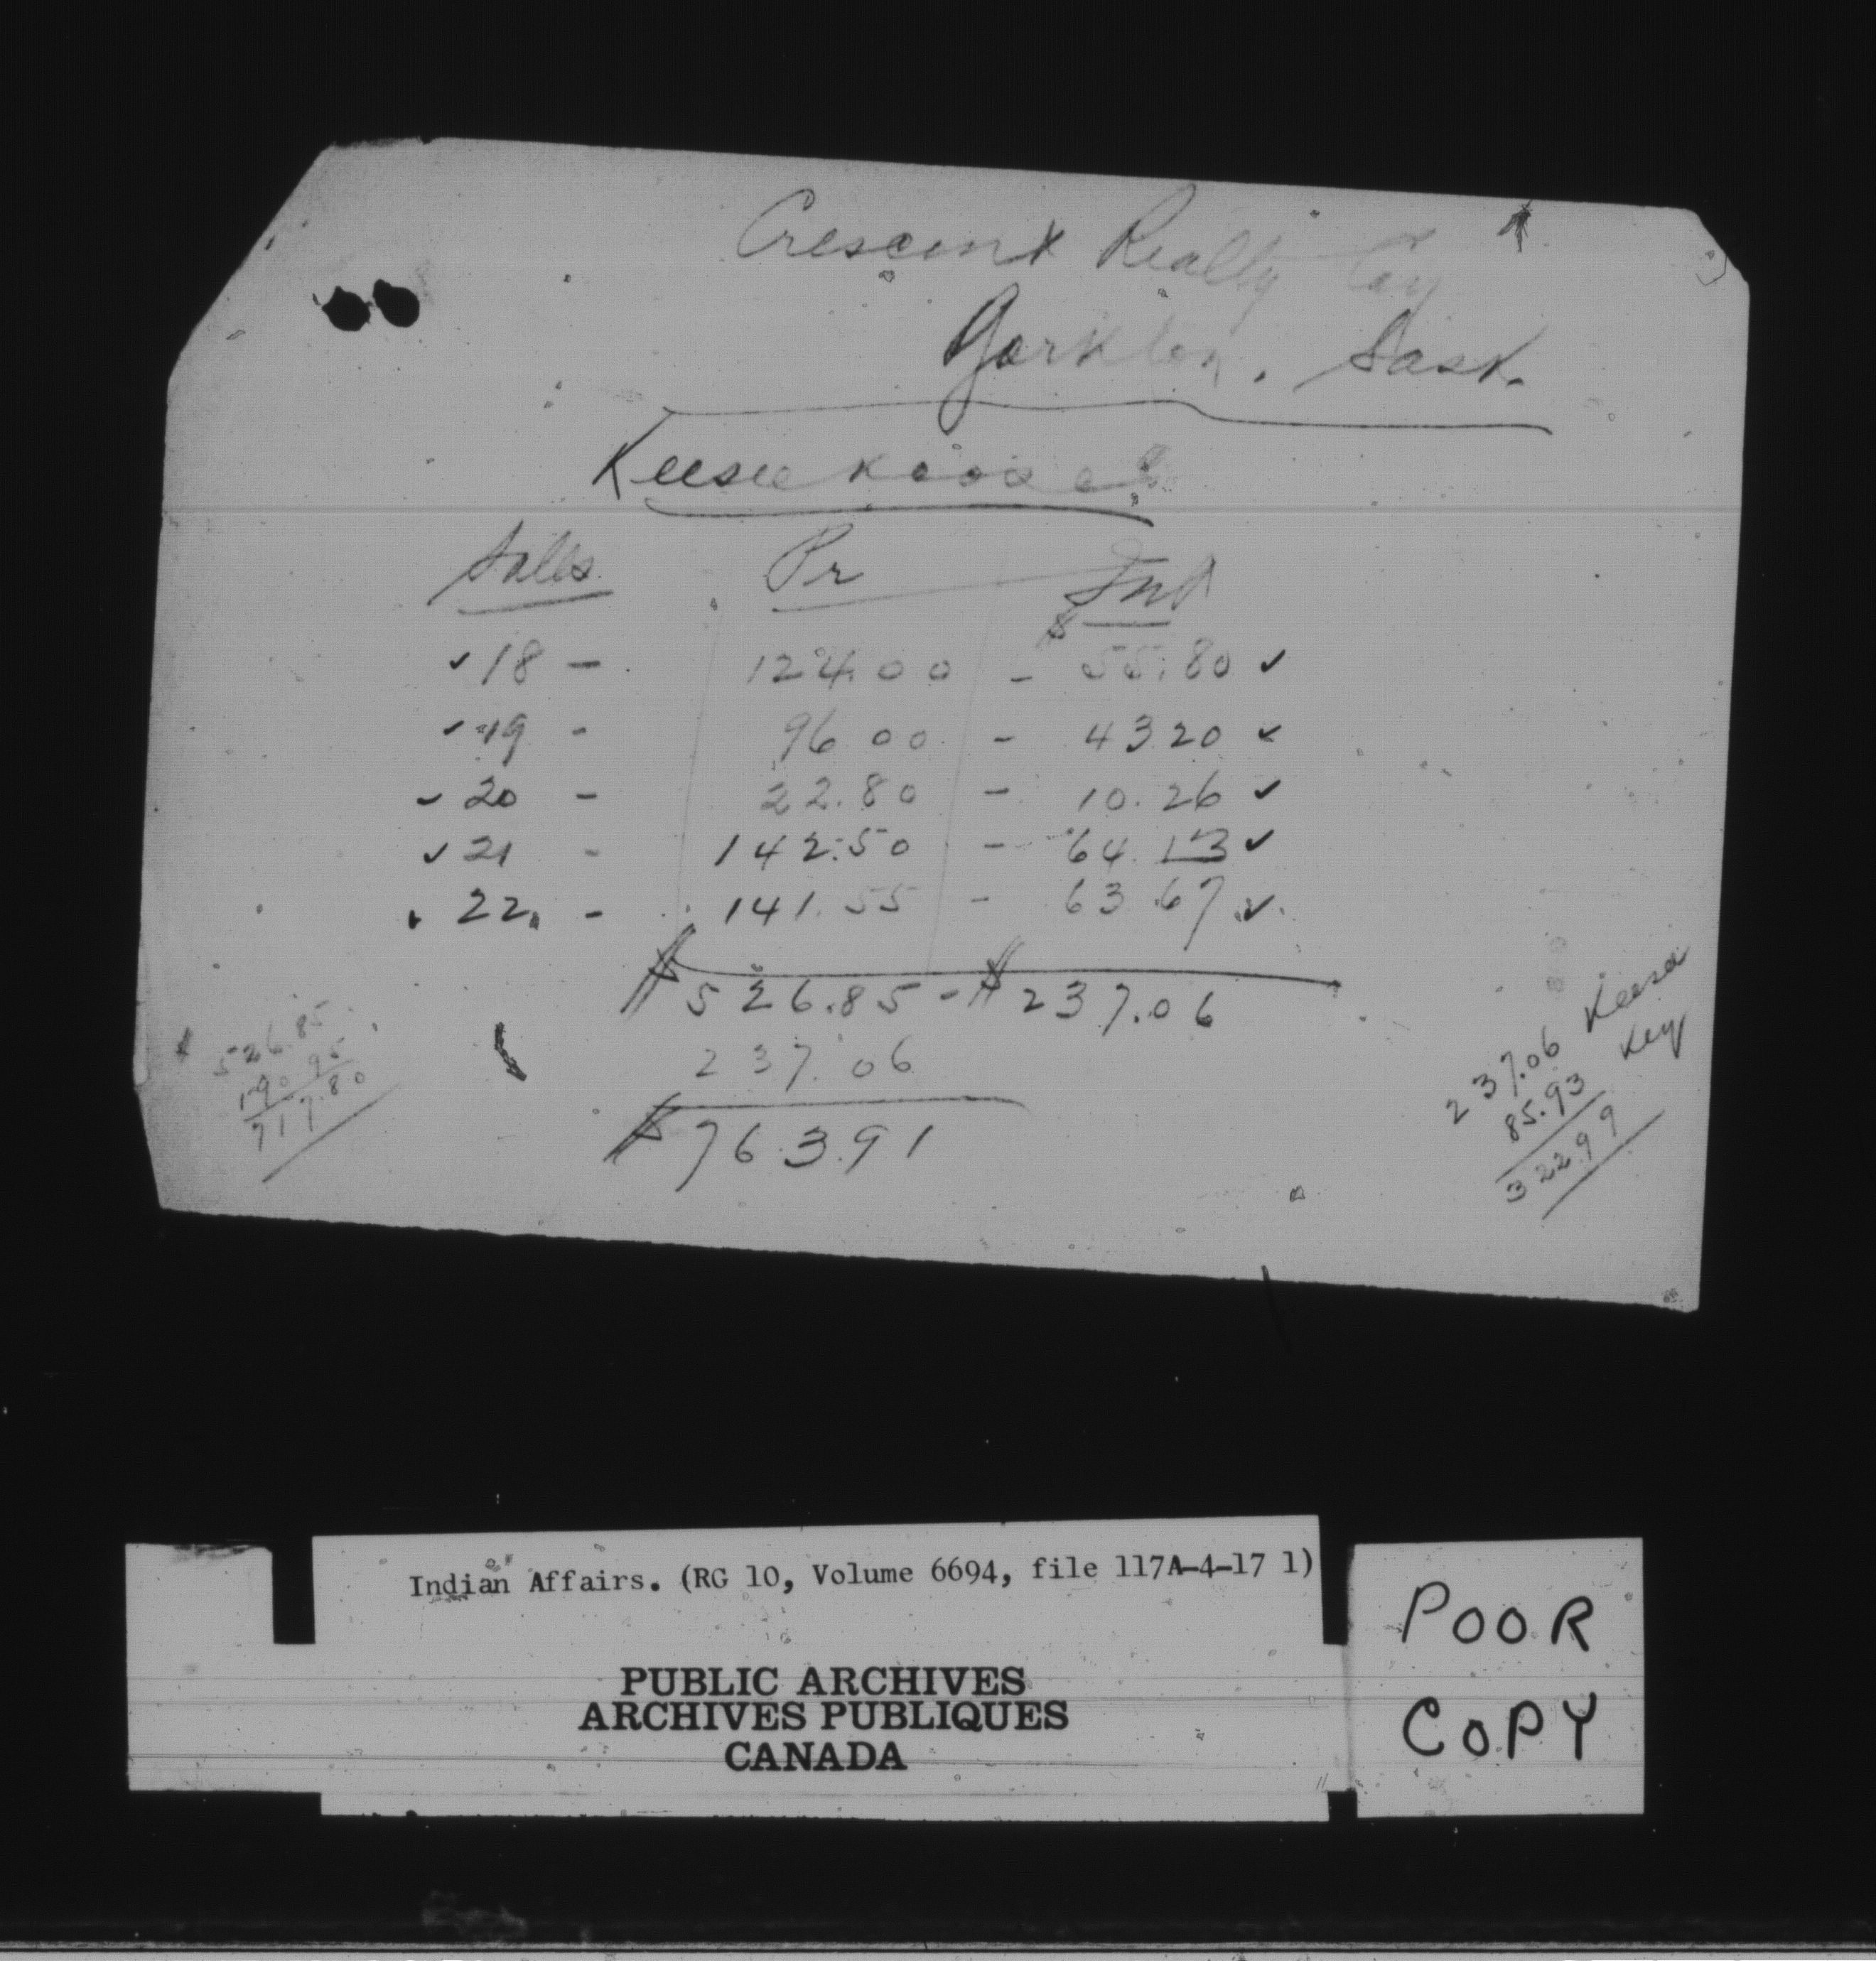 Crescent Realty Coy
Yorkton. Sask.
Keeseekoose
Sales Pr Int
✓ 18 - 124.00 - $ 55.80 ✓
✓ 19 - 96 00 - 43 20 ✓
✓ 20 - 22.80 - 10.26 ✓
✓ 21 - 142.50 - 64.13 ✓
22 - 141.55 - 63.67 ✓
$ 526.85 - $ 237.06
237.06
$ 763.91
526.85
190.95
717.80
237.06 Keese
85.93 Key
322.99
Indian Affairs. (RG 10, Volume 6694, file 117A-4-17 1)
PUBLIC ARCHIVES
ARCHIVES PUBLIQUES
CANADA
POOR
COPY